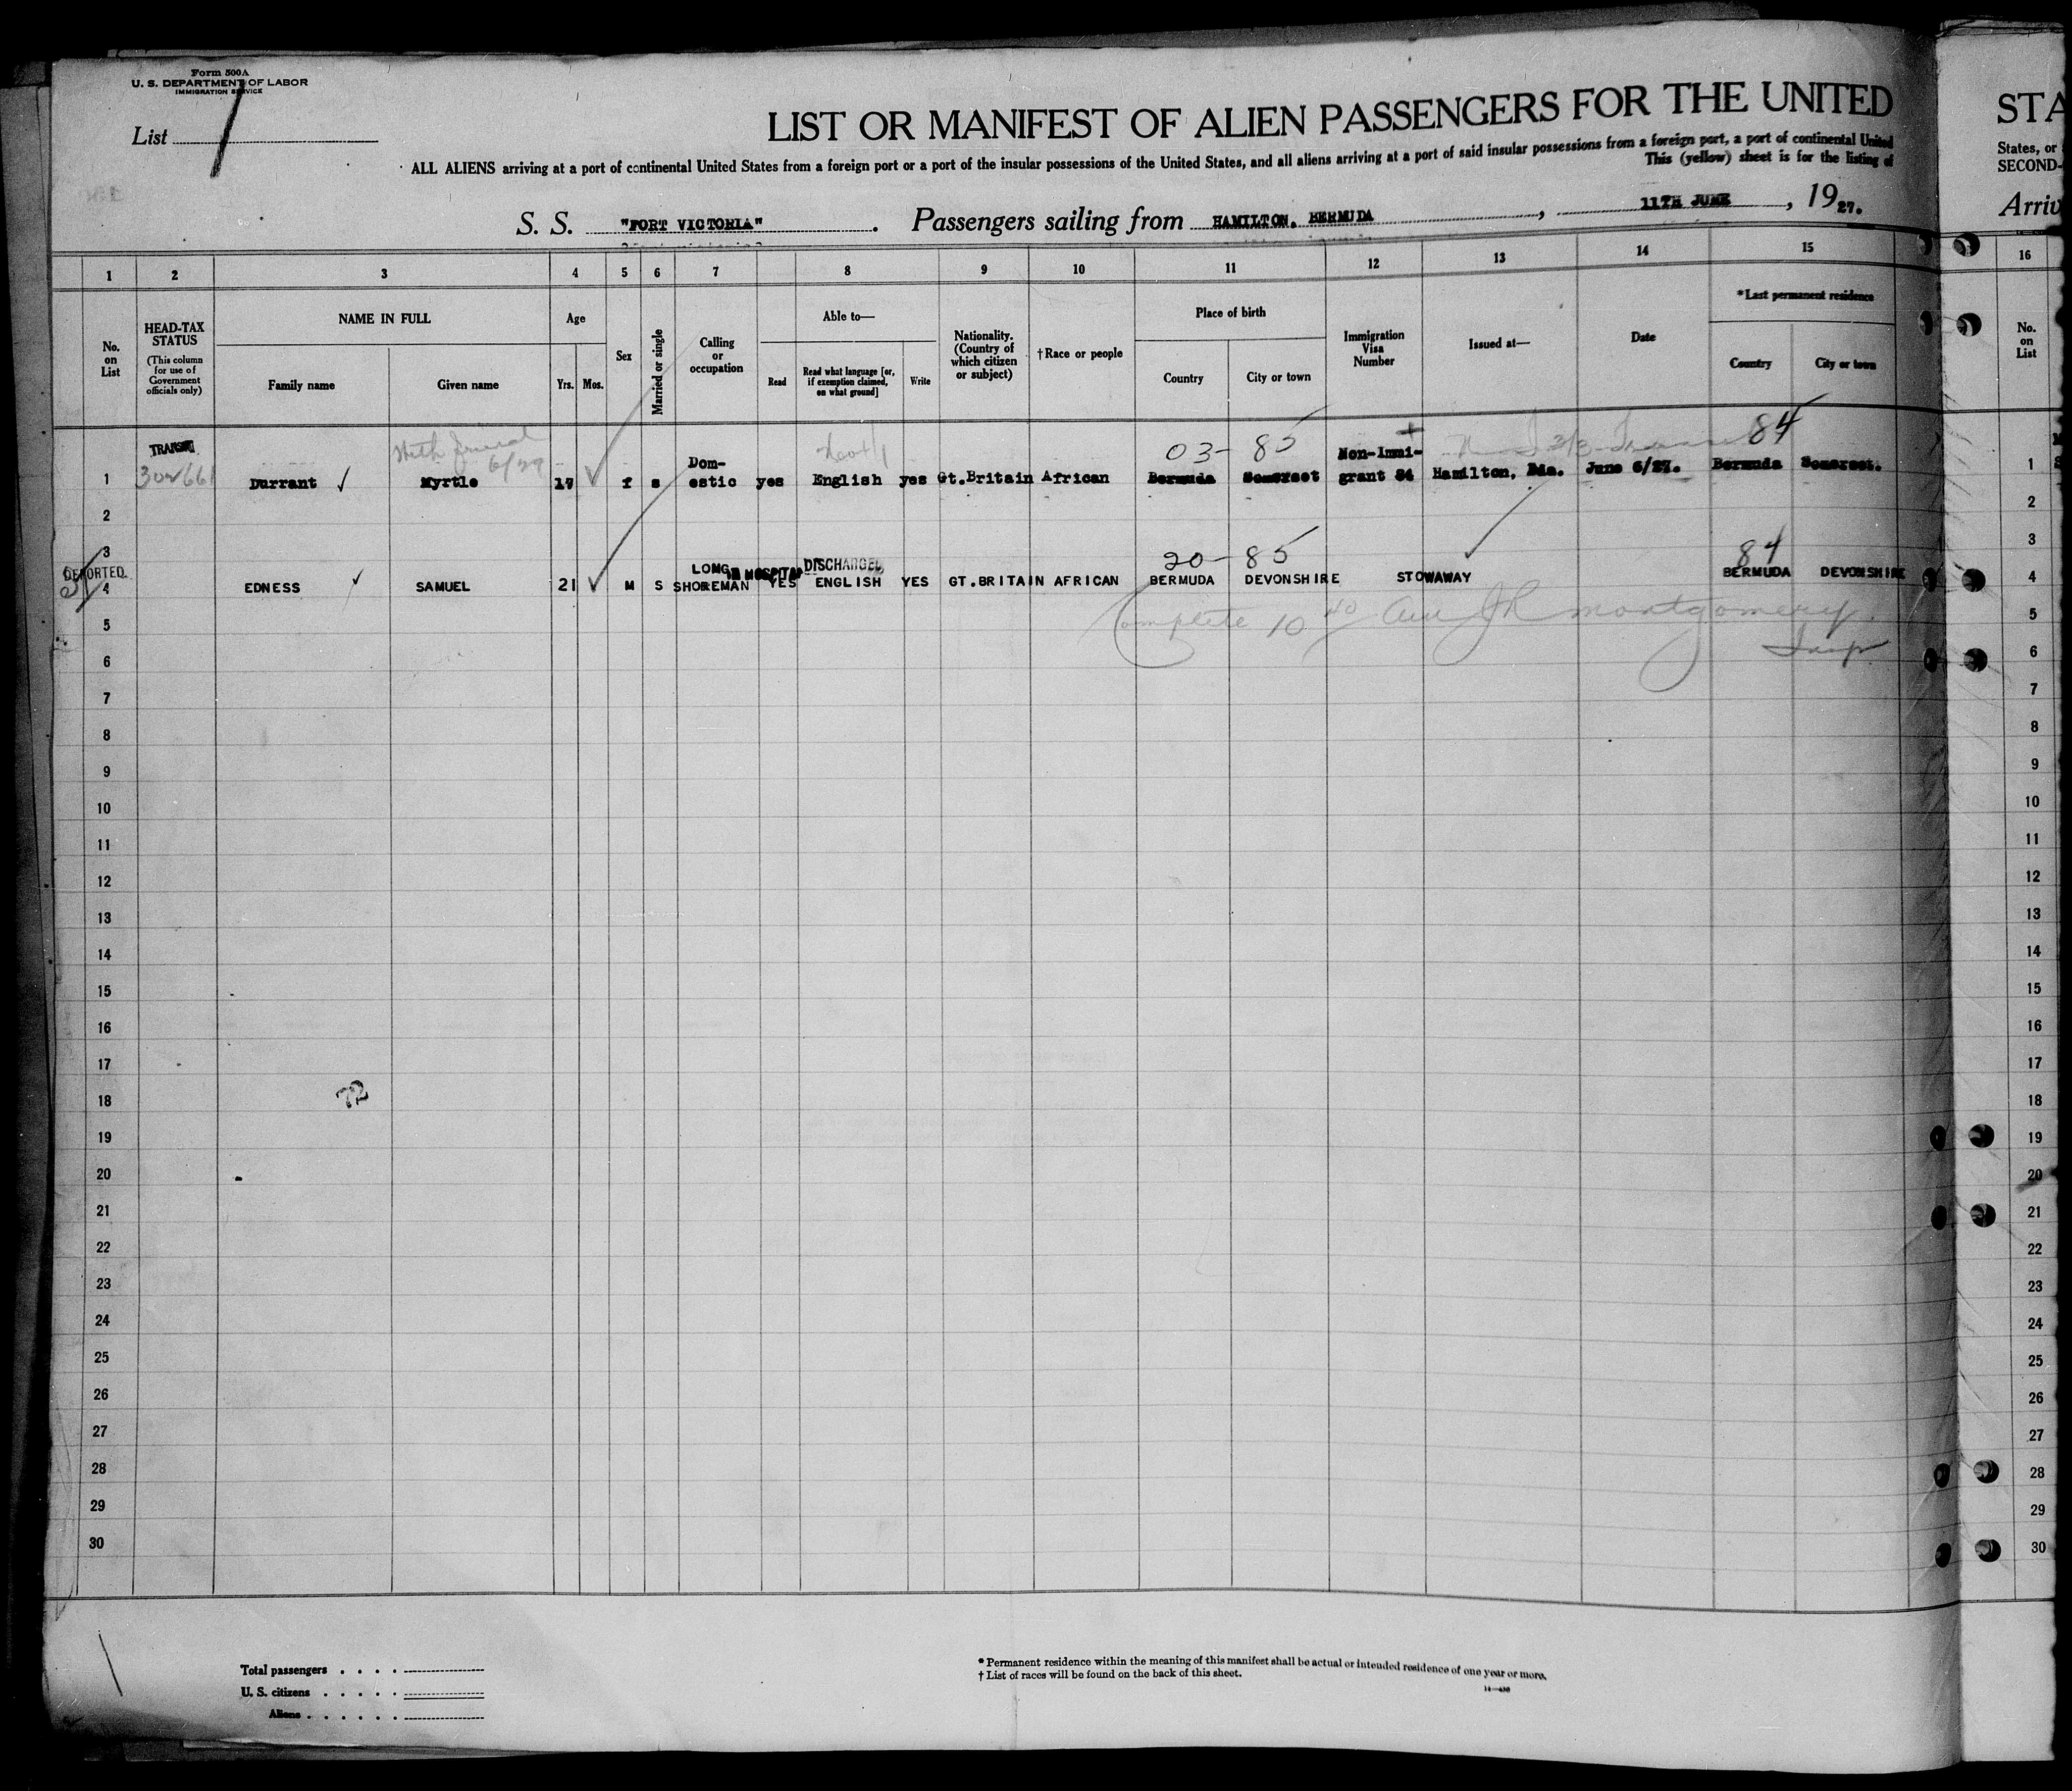 Form 500A
U. S. DEPARTMENT OF LABOR
IMMIGRATION SERVICE
List
LIST OR MANIFEST OF ALIEN PASSENGERS FOR THE UNITED
STA
ALL ALIENS arriving at a port of continental United States from a foreign port or a port of the insular possessions of the United States, and all aliens arriving at a port of said insular possessions from a foreign port, a port of continental United
States, or
This (yellow) sheet is for the listing of
SECOND-
S. S. "FORT VICTORIA". Passengers sailing from HAMILTON, BERMUDA, 11TH JUNE, 1927.
Arriv
1 2 3 4 5 6 7 8 9 10 11 12 13 14 15 16
No. on List
HEAD-TAX STATUS
(This column for use of Government officials only)
NAME IN FULL
Family name
Given name
Age
Yrs.
Mos.
Sex
Married or single
Calling or occupation
Able to—
Read
Read what language [or, if exemption claimed, on what ground]
Write
Nationality. (Country of which citizen or subject)
†Race or people
Place of birth
Country
City or town
Immigration Visa Number
Issued at—
Date
*Last permanent residence
Country
City or town
No. on List
TRANSIT
6/29
03- 85
84
1 Durrant Myrtle 17 f s Dom-estic yes English yes Gt.Britain African Bermuda Somerset Non-Immi-grant 84 Hamilton, Bda. June 6/27. Bermuda Somerset. 1
2 2
3 3
20- 85
84
DEPORTED
IN HOSPITAL DISCHARGED
4 EDNESS SAMUEL 21 M S LONG SHOREMAN YES ENGLISH YES GT.BRITAIN AFRICAN BERMUDA DEVONSHIRE STOWAWAY BERMUDA DEVONSHIRE 4
Complete 10 40 am JR Montgomery
Insp
5 5
6 6
7 7
8 8
9 9
10 10
11 11
12 12
13 13
14 14
15 15
16 16
17 17
18 18
19 19
20 20
21 21
22 22
23 23
24 24
25 25
26 26
27 27
28 28
29 29
30 30
Total passengers
U. S. citizens
Aliens
* Permanent residence within the meaning of this manifest shall be actual or intended residence of one year or more.
† List of races will be found on the back of this sheet.